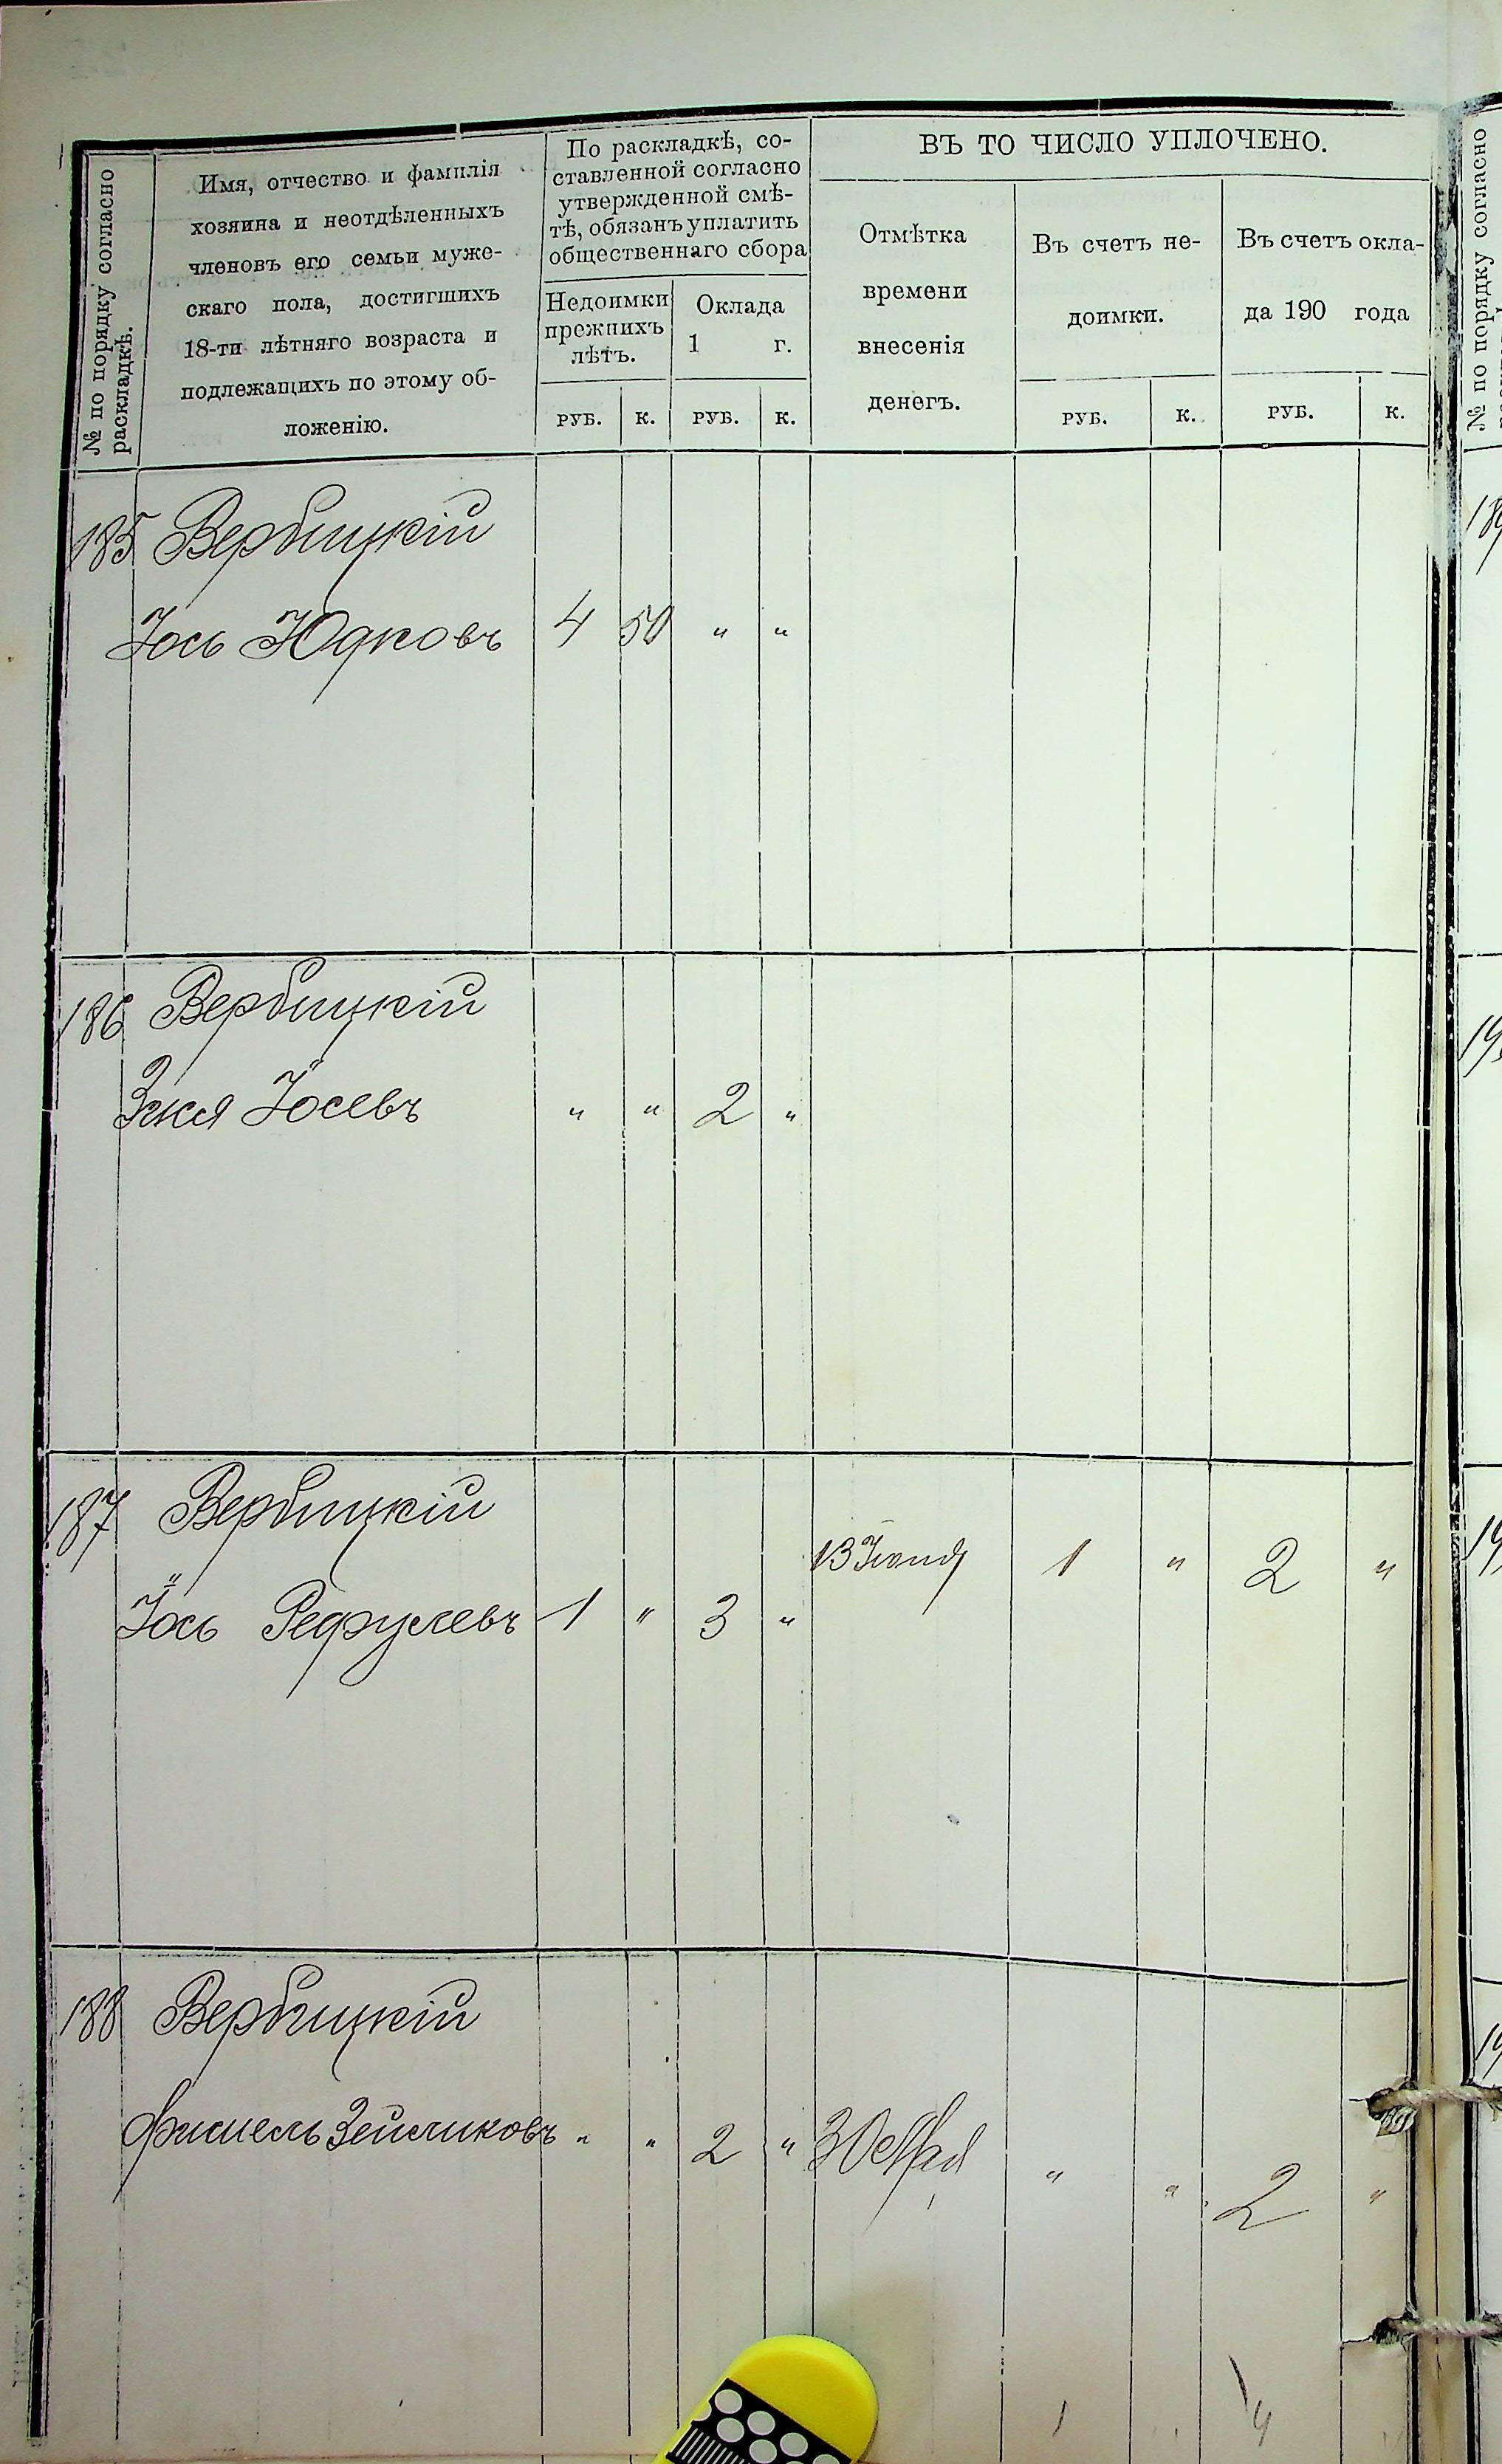 № по порядку согласно
раскладкѣ.
Имя, отчество и фамилія
хозяина и неотдѣленныхъ
членовъ его семьи муже-
скаго пола, достигшихъ
18-ти лѣтняго возраста и
подлежащихъ по этому об-
ложенію.
По раскладкѣ, со-
ставленной согласно
утвержденной смѣ-
тѣ, обязанъ уплатить
общественнаго сбора
Недоимки
прежнихъ
лѣтъ.
Оклада
1 г.
РУБ. К. РУБ. К.
ВЪ ТО ЧИСЛО УПЛОЧЕНО.
Отмѣтка
времени
внесенія
денегъ.
Въ счетъ не-
доимки.
Въ счетъ окла-
да 190 года
РУБ. К. РУБ. К.
185 Вербицкій
Іось Юдковъ 4 50 " "
186 Вербицкій
Іосевъ " " 2 "
187 Вербицкій
13 Іюня 1 " 2 "
Іось 1 " 3 "
188 Вербицкій
Фишель Зейликовъ " " 2 " 30 Мая " " 2 "
1 4
№ по порядку согласно